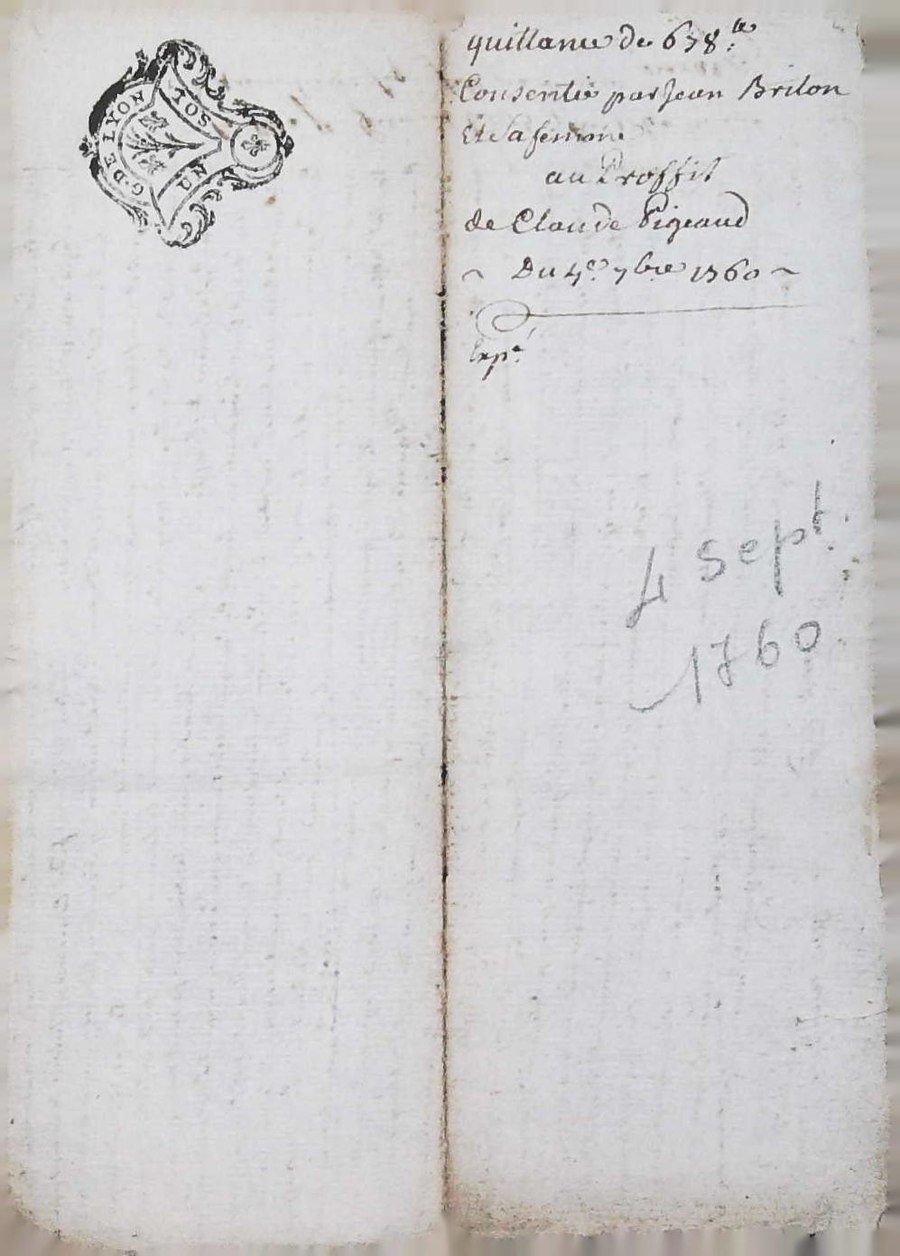 G. DE LYON
UN SOL
quittance de 678.te
Consentie par Jean Briton
Et sa femme
au Proffit
de Claude Pigeaud
~ Du 4e 7bre 1760 ~
Expé
4 sept.
1760